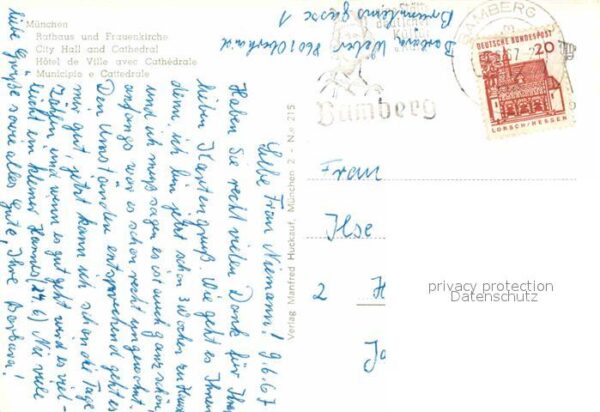 München
Rathaus und Frauenkirche
City Hall and Cathedral
Hôtel de Ville avec Cathédrale
Municipio e Cattedrale
Barbara Weber, 8601 Oberhaid
Brunnleinsgasse 1
9.6.67
Liebe Frau Niemann!
Haben Sie recht vielen Dank für Ihren
lieben Kartengruß. Wie geht es Ihnen
denn, ich bin jetzt schon 3 Wochen zu Hause
und ich muß sagen es ist auch ganz schön,
anfangs war es schon recht ungewohnt.
Den Umständen entsprechend geht es
mir gut, jetzt kann ich schon die Tage
zählen, und wenn es gut geht wird es viel-
leicht ein kleiner Hannes (24.6) Nie viele
liebe Grüße sowie alles Gute, Ihre Barbara!
Verlag Manfred Huckauf, München 2 - Nr. 215
BAMBERG
Bamberg
DEUTSCHE BUNDESPOST
20
LORSCH/HESSEN
Frau
Ilse
2 H
Ja
privacy protection
Datenschutz